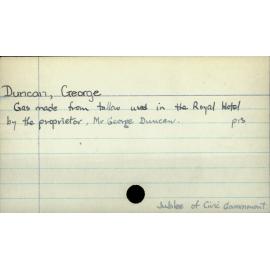 Duncan, George
Gas made from tallow used in the Royal Hotel
by the proprietor, Mr George Duncan. p13
Jubilee of Civic Government